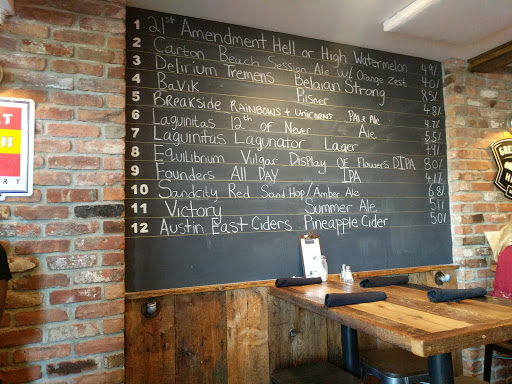 1 21st Amendment Hell or High Watermelon 4.9%
2 Carton Beach Session Ale w/ Orange Zest 4.0%
3 Delirium Tremens Belgian Strong 8.5%
4 BaVik Pilsner 4.8%
5 Breakside RAINBOWS + UNICORNS PALE ALE
6 Lagunitas 12th of Never Ale 5.5%
7 Lagunitas Lagunator Lager
8 Equilibrium Vulgar Display OF Flowers DIPA 8.0%
9 Founders All DAY IPA
10 Sandcity Red Sand Hop/Amber Ale 6.8%
11 Victory Summer Ale 5.1%
12 Austin East Ciders Pineapple Cider 5.0%